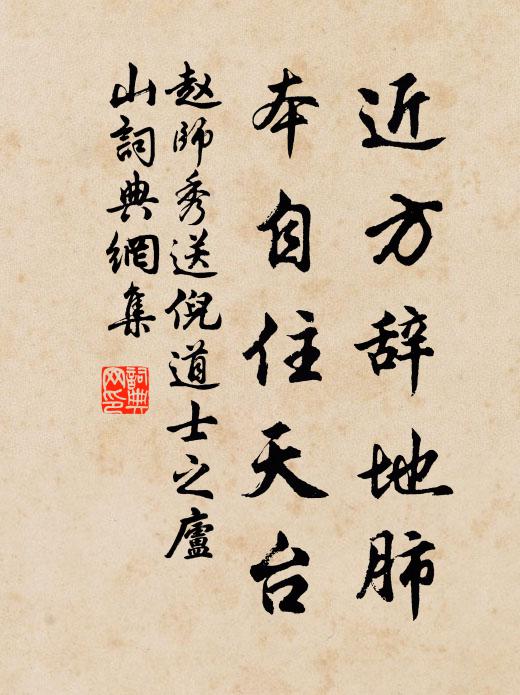 近方辞地肺
本自住天台
赵师秀送倪道士之廬
山詞典網集
詞典
网印